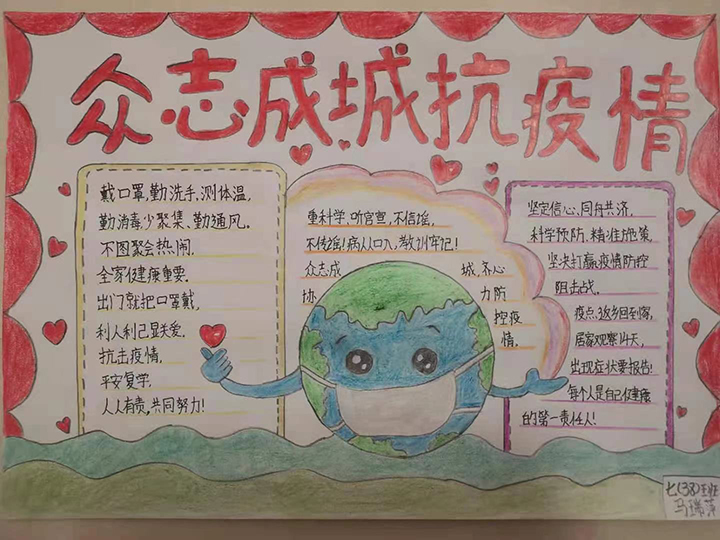 众志成城抗疫情
戴口罩,勤洗手,测体温,
勤消毒少聚集、勤通风.
不图聚会热闹.
全家健康重要.
出门就把口罩戴,
利人利己显关爱.
抗击疫情,
平安复学.
人人有责,共同努力!
重科学、听官宣,不信谣,
不传谣!病从口入,教训牢记!
众志成 城、齐心
协 力防
控疫
情.
坚定信心、同舟共济,
科学预防、精准施策,
坚决打赢疫情防控
阻击战.
疫点返乡回到家,
居家观察14天,
出现症状要报告!
每个人是自己健康
的第一责任人!
七(38)班
马瑞萍